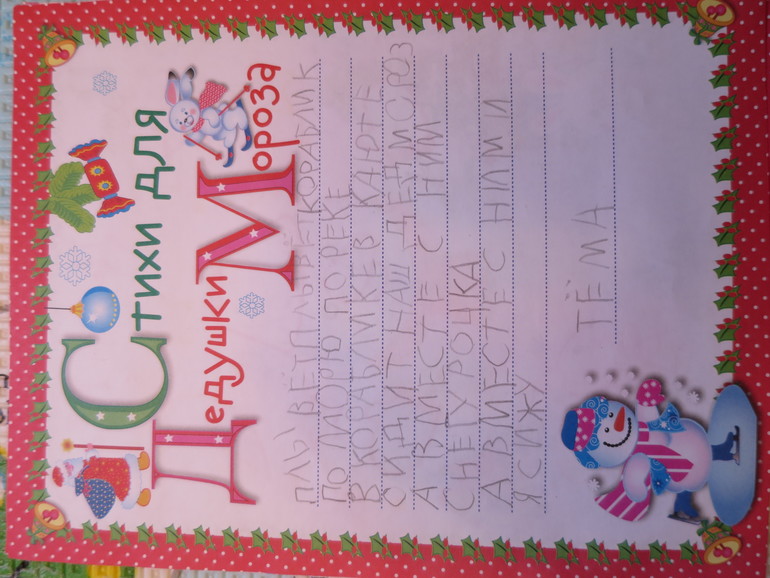 Стихи для
Дедушки Мороза
ПЛЫВЕТ ПЛЫВЕТ КОРАБЛИК
ПО МОРЮ ПО РЕКЕ
В КОРАБЛИКЕ В КАЮТЕ
СИДИТ НАШ ДЕД МОРОЗ
А ВМЕСТЕ С НИМ
СНЕГУРОЧКА
А ВМЕСТЕ С НИМИ
Я СИЖУ
ТЁМА